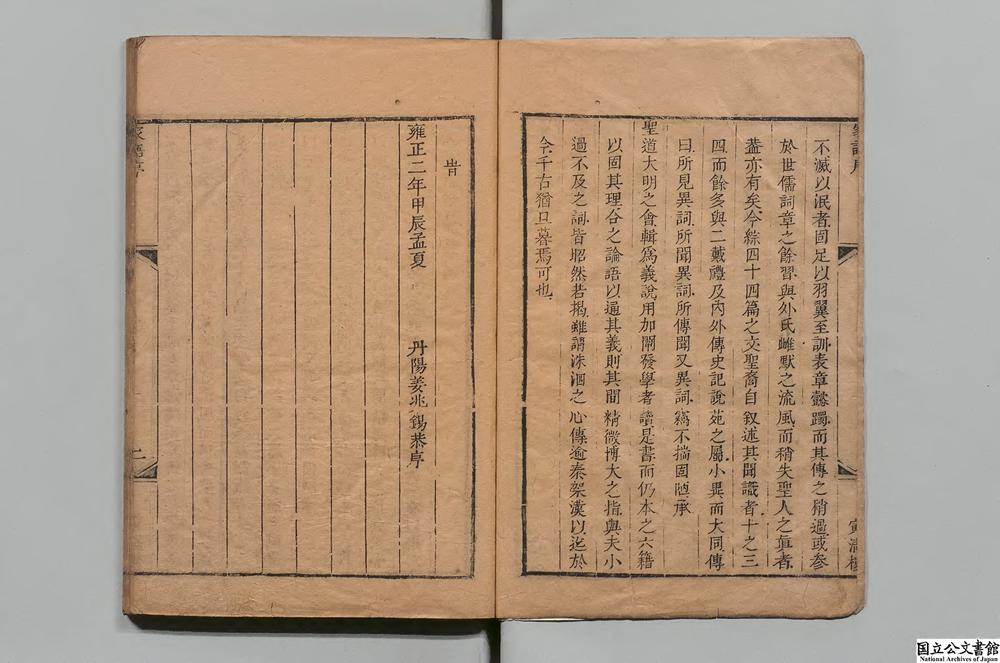 不滅以泯者固足以羽翼至訓表章懿躅而其傳之稍過或參
於世儒詞章之餘習與外氏雌默之流風而稍失聖人之眞者
葢亦有矣今綜四十四篇之文聖裔自叙述其聞識者十之三
四而餘多與二戴禮及內外傳史記說苑之屬小異而大同傳
曰所見異詞所聞異詞所傳聞又異詞竊不揣固陋承
聖道大明之會輯爲義說用加闡發學者讀是書而仍本之六籍
以固其理合之論語以通其義則其間精微博大之指與夫小
過不及之詞皆昭然若揭雖謂洙泗之心傳逾秦架漢以迄於
今千古猶旦暮焉可也
寅清樓
旹
雍正二年甲辰孟夏 丹陽姜兆錫恭序
家語序
二
国立公文書館
National Archives of Japan